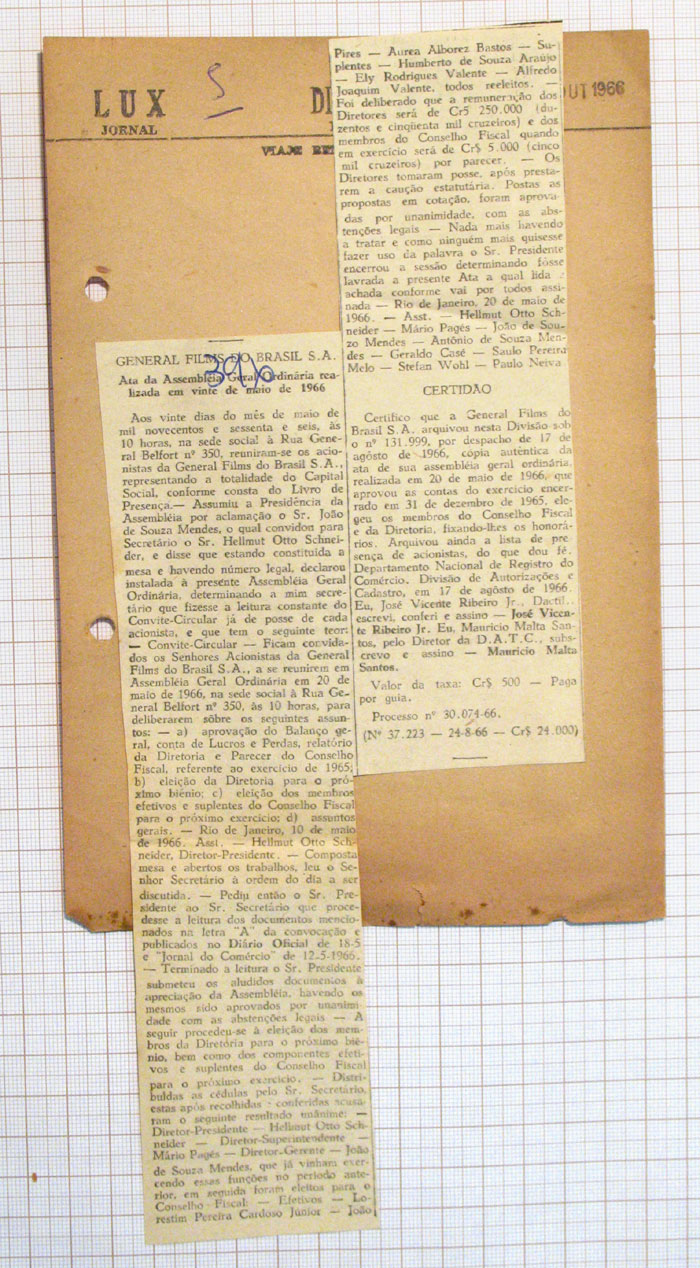 LUX
JORNAL
5
DI
OUT 1966
GENERAL FILMS DO BRASIL S.A.
3916
Ata da Assembléia Geral Ordinária rea-
lizada em vinte de maio de 1966
Aos vinte dias do mês de maio de
mil novecentos e sessenta e seis, às
10 horas, na sede social à Rua Gene-
ral Belfort nº 350, reuniram-se os acio-
nistas da General Films do Brasil S.A.,
representando a totalidade do Capital
Social, conforme consta do Livro de
Presença.— Assumiu a Presidência da
Assembléia por aclamação o Sr. João
de Souza Mendes, o qual convidou para
Secretário o Sr. Hellmut Otto Schnei-
der, e disse que estando constituída a
mesa e havendo número legal, declarou
instalada à presente Assembléia Geral
Ordinária, determinando a mim secre-
tário que fizesse a leitura constante do
Convite-Circular já de posse de cada
acionista, e que tem o seguinte teor:
— Convite-Circular — Ficam convida-
dos os Senhores Acionistas da General
Films do Brasil S.A., a se reunirem em
Assembléia Geral Ordinária em 20 de
maio de 1966, na sede social à Rua Ge-
neral Belfort nº 350, às 10 horas, para
deliberarem sôbre os seguintes assun-
tos: — a) aprovação do Balanço ge-
ral, conta de Lucros e Perdas, relatório
da Diretoria e Parecer do Conselho
Fiscal, referente ao exercício de 1965;
b) eleição da Diretoria para o pró-
ximo biênio; c) eleição dos membros
efetivos e suplentes do Conselho Fiscal
para o próximo exercício; d) assuntos
gerais. — Rio de Janeiro, 10 de maio
de 1966. Asst. — Hellmut Otto Sch-
neider, Diretor-Presidente. — Composta
mesa e abertos os trabalhos, leu o Se-
nhor Secretário à ordem do dia a ser
discutida. — Pediu então o Sr. Pre-
sidente ao Sr. Secretário que proce-
desse a leitura dos documentos mencio-
nados na letra "A" da convocação e
publicados no Diário Oficial de 18-5
e "Jornal do Comércio" de 12-5-1966.
— Terminado a leitura o Sr. Presidente
submeteu os aludidos documentos à
apreciação da Assembléia, havendo os
mesmos sido aprovados por unanimi-
dade com as abstenções legais — A
seguir procedeu-se à eleição dos mem-
bros da Diretória para o próximo biê-
nio, bem como dos componentes efeti-
vos e suplentes do Conselho Fiscal
para o próximo exercício. — Distri-
buídas as cédulas pelo Sr. Secretário,
estas após recolhidas conferidas acusa-
ram o seguinte resultado unânime: —
Diretor-Presidente — Hellmut Otto Sch-
neider — Diretor-Superintendente —
Mário Pagés — Diretor-Gerente — João
de Souza Mendes, que já vinham exer-
cendo essas funções no período ante-
rior, em seguida foram eleitos para o
Conselho Fiscal: — Efetivos — Lo-
restim Pereira Cardoso Júnior — João
Pires — Aurea Alborez Bastos — Su-
plentes — Humberto de Souza Araújo
— Ely Rodrigues Valente — Alfredo
Joaquim Valente, todos reeleitos. —
Foi deliberado que a remuneração dos
Diretores será de Cr$ 250.000 (du-
zentos e cinqüenta mil cruzeiros) e dos
membros do Conselho Fiscal quando
em exercício será de Cr$ 5.000 (cinco
mil cruzeiros) por parecer. — Os
Diretores tomaram posse, após presta-
rem a caução estatutária. Postas as
propostas em cotação, foram aprova-
das por unanimidade, com as abs-
tenções legais — Nada mais havendo
a tratar e como ninguém mais quisesse
fazer uso da palavra o Sr. Presidente
encerrou a sessão determinando fôsse
lavrada a presente Ata a qual lida
achada conforme vai por todos assi-
nada — Rio de Janeiro, 20 de maio de
1966. — Asst. — Hellmut Otto Sch-
neider — Mário Pagés — João de Sou-
zo Mendes — Antônio de Souza Men-
des — Geraldo Casé — Saulo Pereira
Melo — Stefan Wohl — Paulo Neiva
CERTIDÃO
Certifico que a General Films do
Brasil S.A. arquivou nesta Divisão sob
o nº 131.999, por despacho de 17 de
agôsto de 1966, cópia autêntica da
ata de sua assembléia geral ordinária,
realizada em 20 de maio de 1966, que
aprovou as contas do exercício encer-
rado em 31 de dezembro de 1965, ele-
geu os membros do Conselho Fiscal
e da Diretoria, fixando-lhes os honorá-
rios. Arquivou ainda a lista de pre-
sença de acionistas, do que dou fé.
Departamento Nacional de Registro do
Comércio. Divisão de Autorizações e
Cadastro, em 17 de agôsto de 1966.
Eu, José Vicente Ribeiro Jr., Dactil.,
escrevi, conferi e assino — José Vicen-
te Ribeiro Jr. Eu, Mauricio Malta San-
tos, pelo Diretor da D.A.T.C., subs-
crevo e assino — Mauricio Malta
Santos.
Valor da taxa: Cr$ 500 — Paga
por guia.
Processo nº 30.074-66.
(Nº 37.223 — 24-8-66 — Cr$ 24.000)